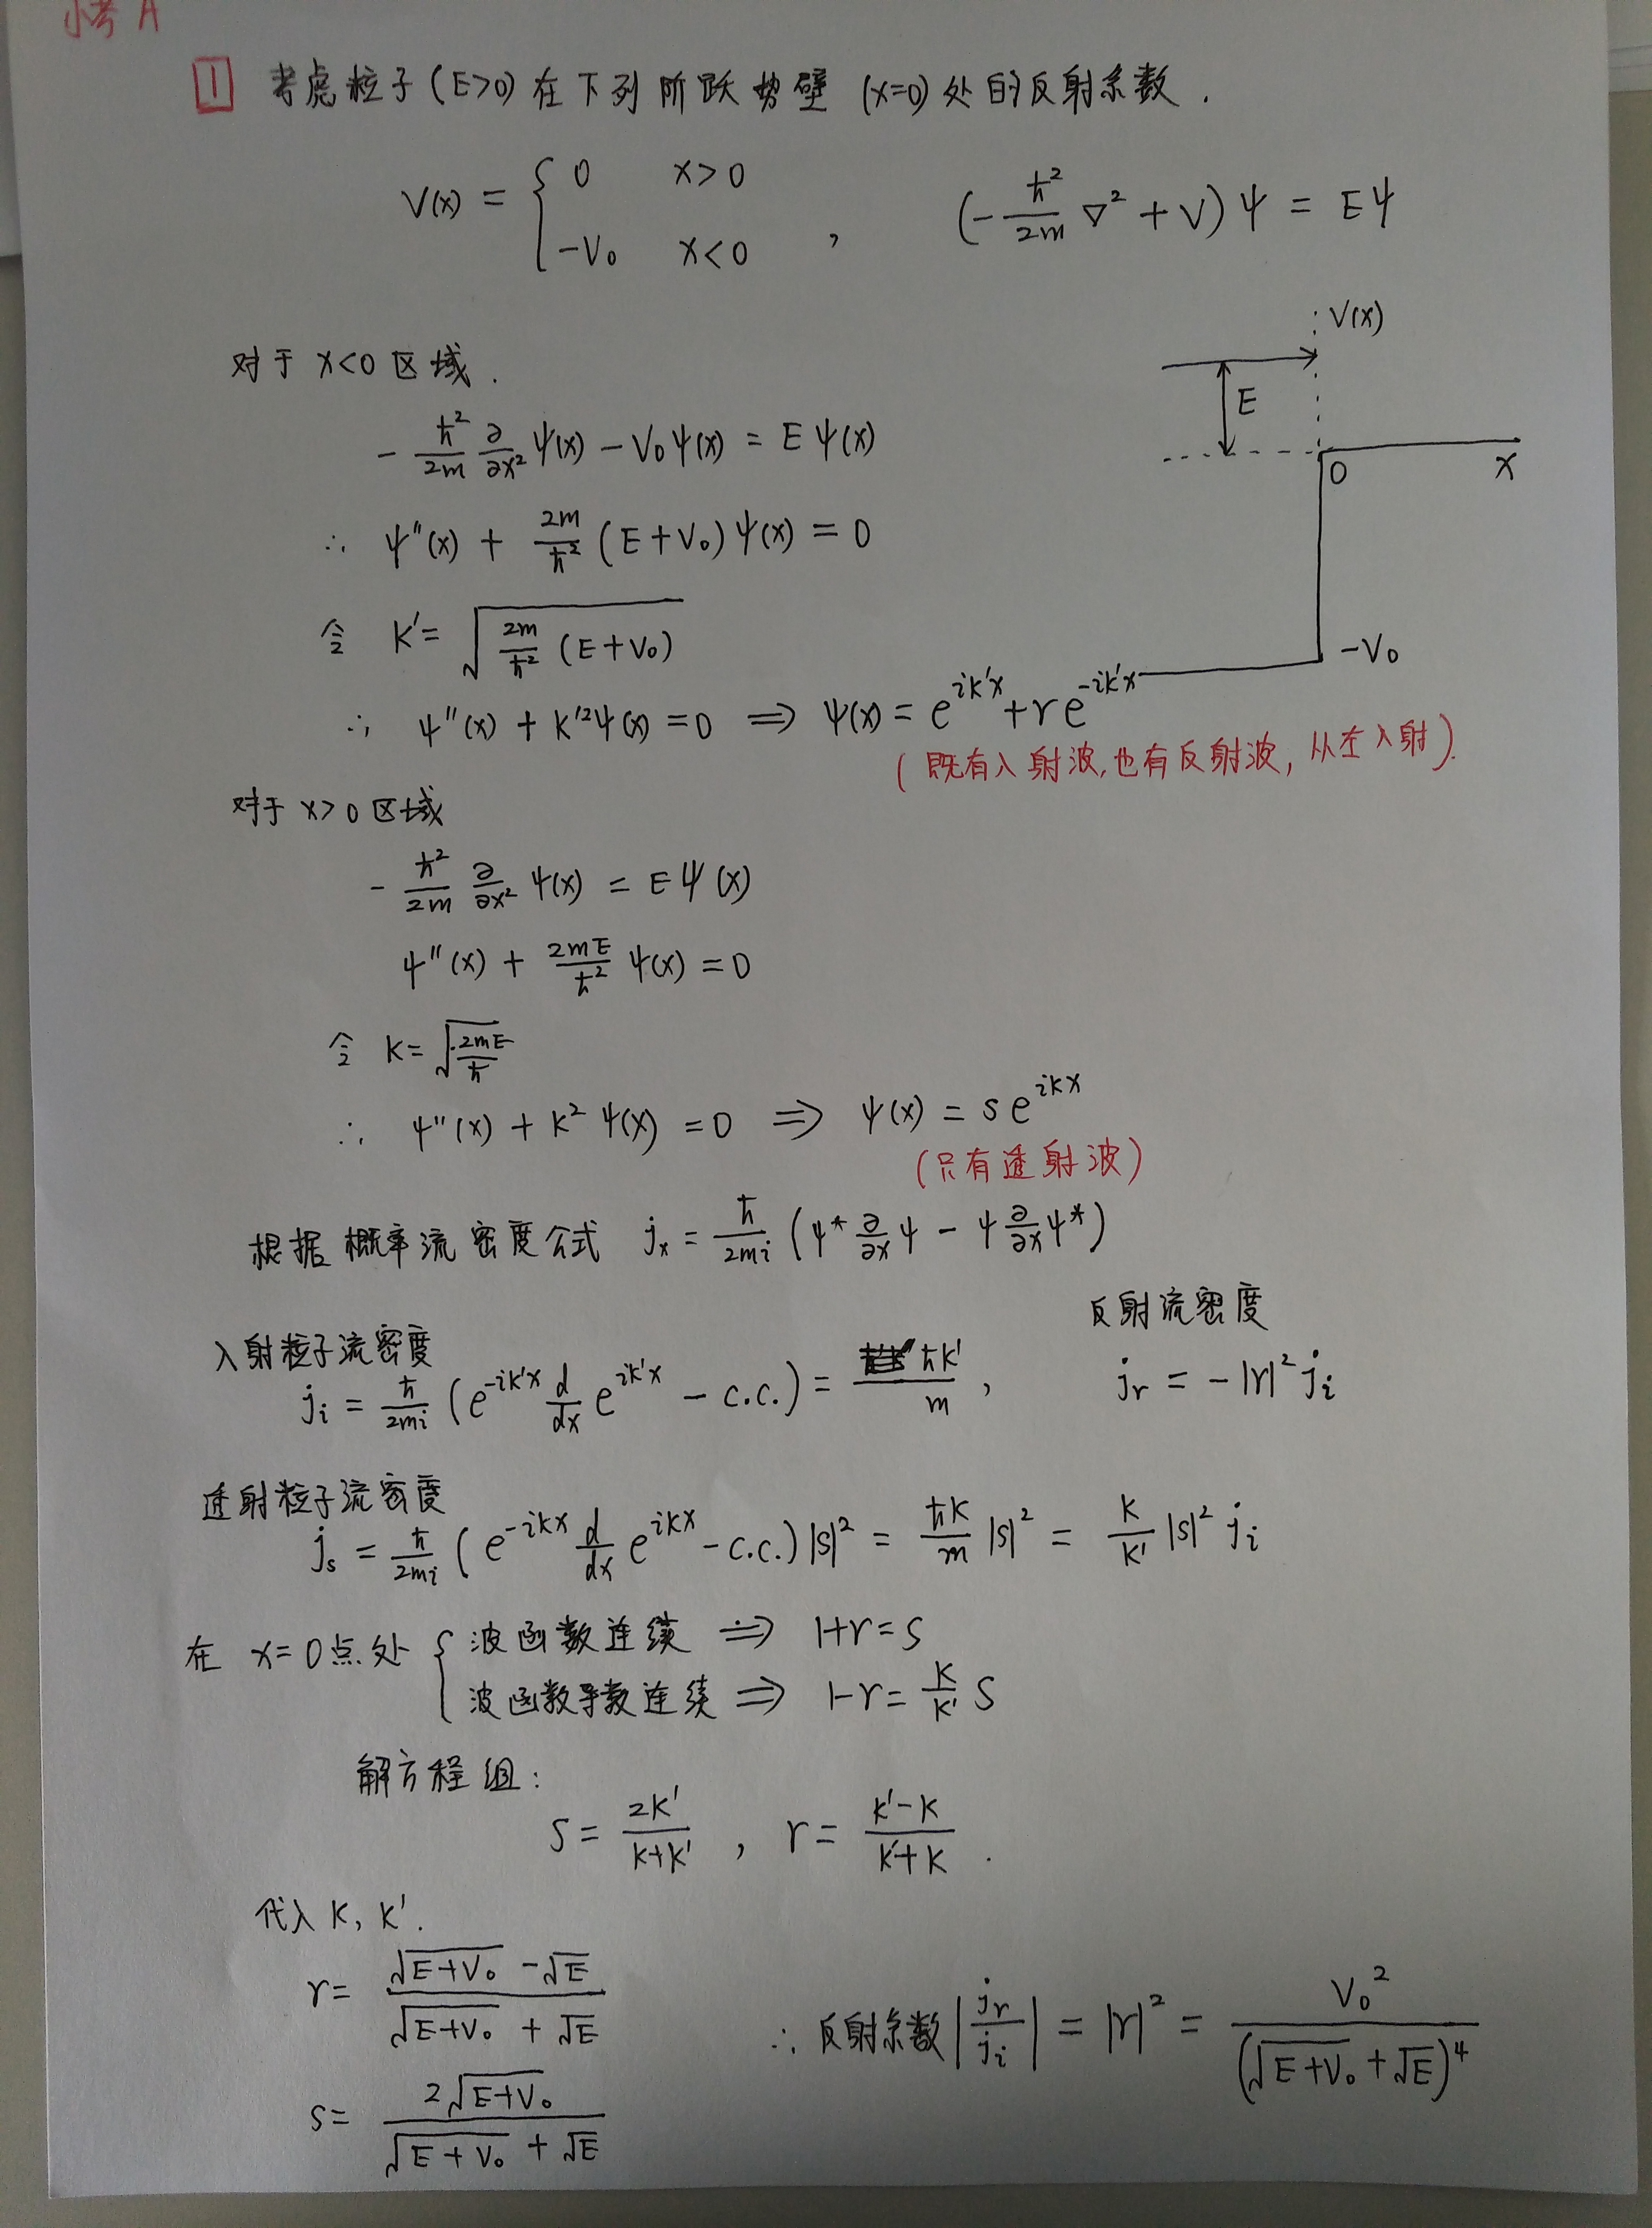 小考 A
1 考虑粒子(E>0)在下列阶跃势壁 (x=0)处的反射系数.
V(x) = { 0 x>0
-V₀ x<0 , (-ħ²/2m ∇² + V)ψ = Eψ
V(x)
E
0 x
-V₀
对于 x<0 区域.
-ħ²/2m ∂/∂x² ψ(x) - V₀ψ(x) = Eψ(x)
∴ ψ''(x) + 2m/ħ² (E+V₀)ψ(x) = 0
令 k' = √(2m/ħ² (E+V₀))
∴ ψ''(x) + k'²ψ(x) = 0 ⇒ ψ(x) = e^{ik'x} + re^{-ik'x}
(既有入射波,也有反射波, 从左入射).
对于 x>0 区域
-ħ²/2m ∂/∂x² ψ(x) = Eψ(x)
ψ''(x) + 2mE/ħ² ψ(x) = 0
令 k = √(2mE/ħ)
∴ ψ''(x) + k²ψ(x) = 0 ⇒ ψ(x) = se^{ikx}
(只有透射波)
根据概率流密度公式 jₓ = ħ/2mi (ψ* ∂/∂x ψ - ψ ∂/∂x ψ*)
入射粒子流密度 反射流密度
jᵢ = ħ/2mi (e^{-ik'x} d/dx e^{ik'x} - c.c.) = ħk'/m , jᵣ = -|r|² jᵢ
透射粒子流密度
jₛ = ħ/2mi (e^{-ikx} d/dx e^{ikx} - c.c.)|s|² = ħk/m |s|² = k/k' |s|² jᵢ
在 x=0点处 { 波函数连续 ⇒ 1+r=s
波函数导数连续 ⇒ 1-r = k/k' s
解方程组:
s = 2k'/(k+k') , r = (k'-k)/(k'+k) .
代入 k, k'.
r = (√(E+V₀) - √E)/(√(E+V₀) + √E)
∴ 反射系数 |jᵣ/jᵢ| = |r|² = V₀²/(√(E+V₀) + √E)⁴
s = 2√(E+V₀)/(√(E+V₀) + √E)